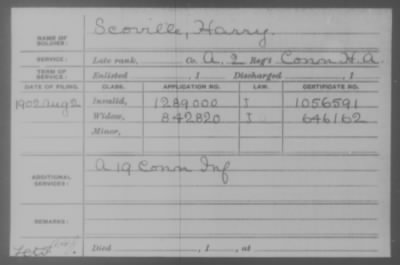 NAME OF SOLDIER: Scoville, Harry.
SERVICE: Late rank, Co. A, 2 Reg't Conn H. A.
TERM OF SERVICE: Enlisted , 1 Discharged , 1
DATE OF FILING. CLASS. APPLICATION NO. LAW. CERTIFICATE NO.
1902 Aug 2 Invalid, 1289000 I 1056591
Widow, 842820 I 646162
Minor,
ADDITIONAL SERVICES: A 19 Conn Inf
REMARKS:
Died , 1 , at